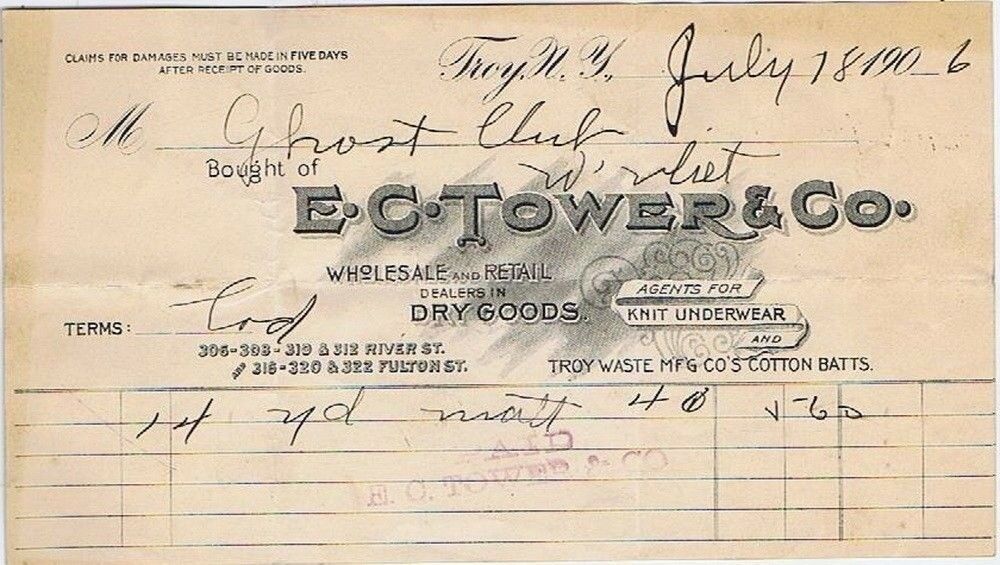 CLAIMS FOR DAMAGES MUST BE MADE IN FIVE DAYS
AFTER RECEIPT OF GOODS.
Troy, N. Y., July 18 190-6
M Ghost Club
W'vliet
Bought of
E. C. TOWER & CO.
WHOLESALE AND RETAIL
DEALERS IN
DRY GOODS.
AGENTS FOR
KNIT UNDERWEAR
AND
TROY WASTE MFG CO'S COTTON BATTS.
TERMS: Cod
306-308-310 & 312 RIVER ST.
AND 316-320 & 322 FULTON ST.
14 yd matt 40 5-60
PAID
E. C. TOWER & CO